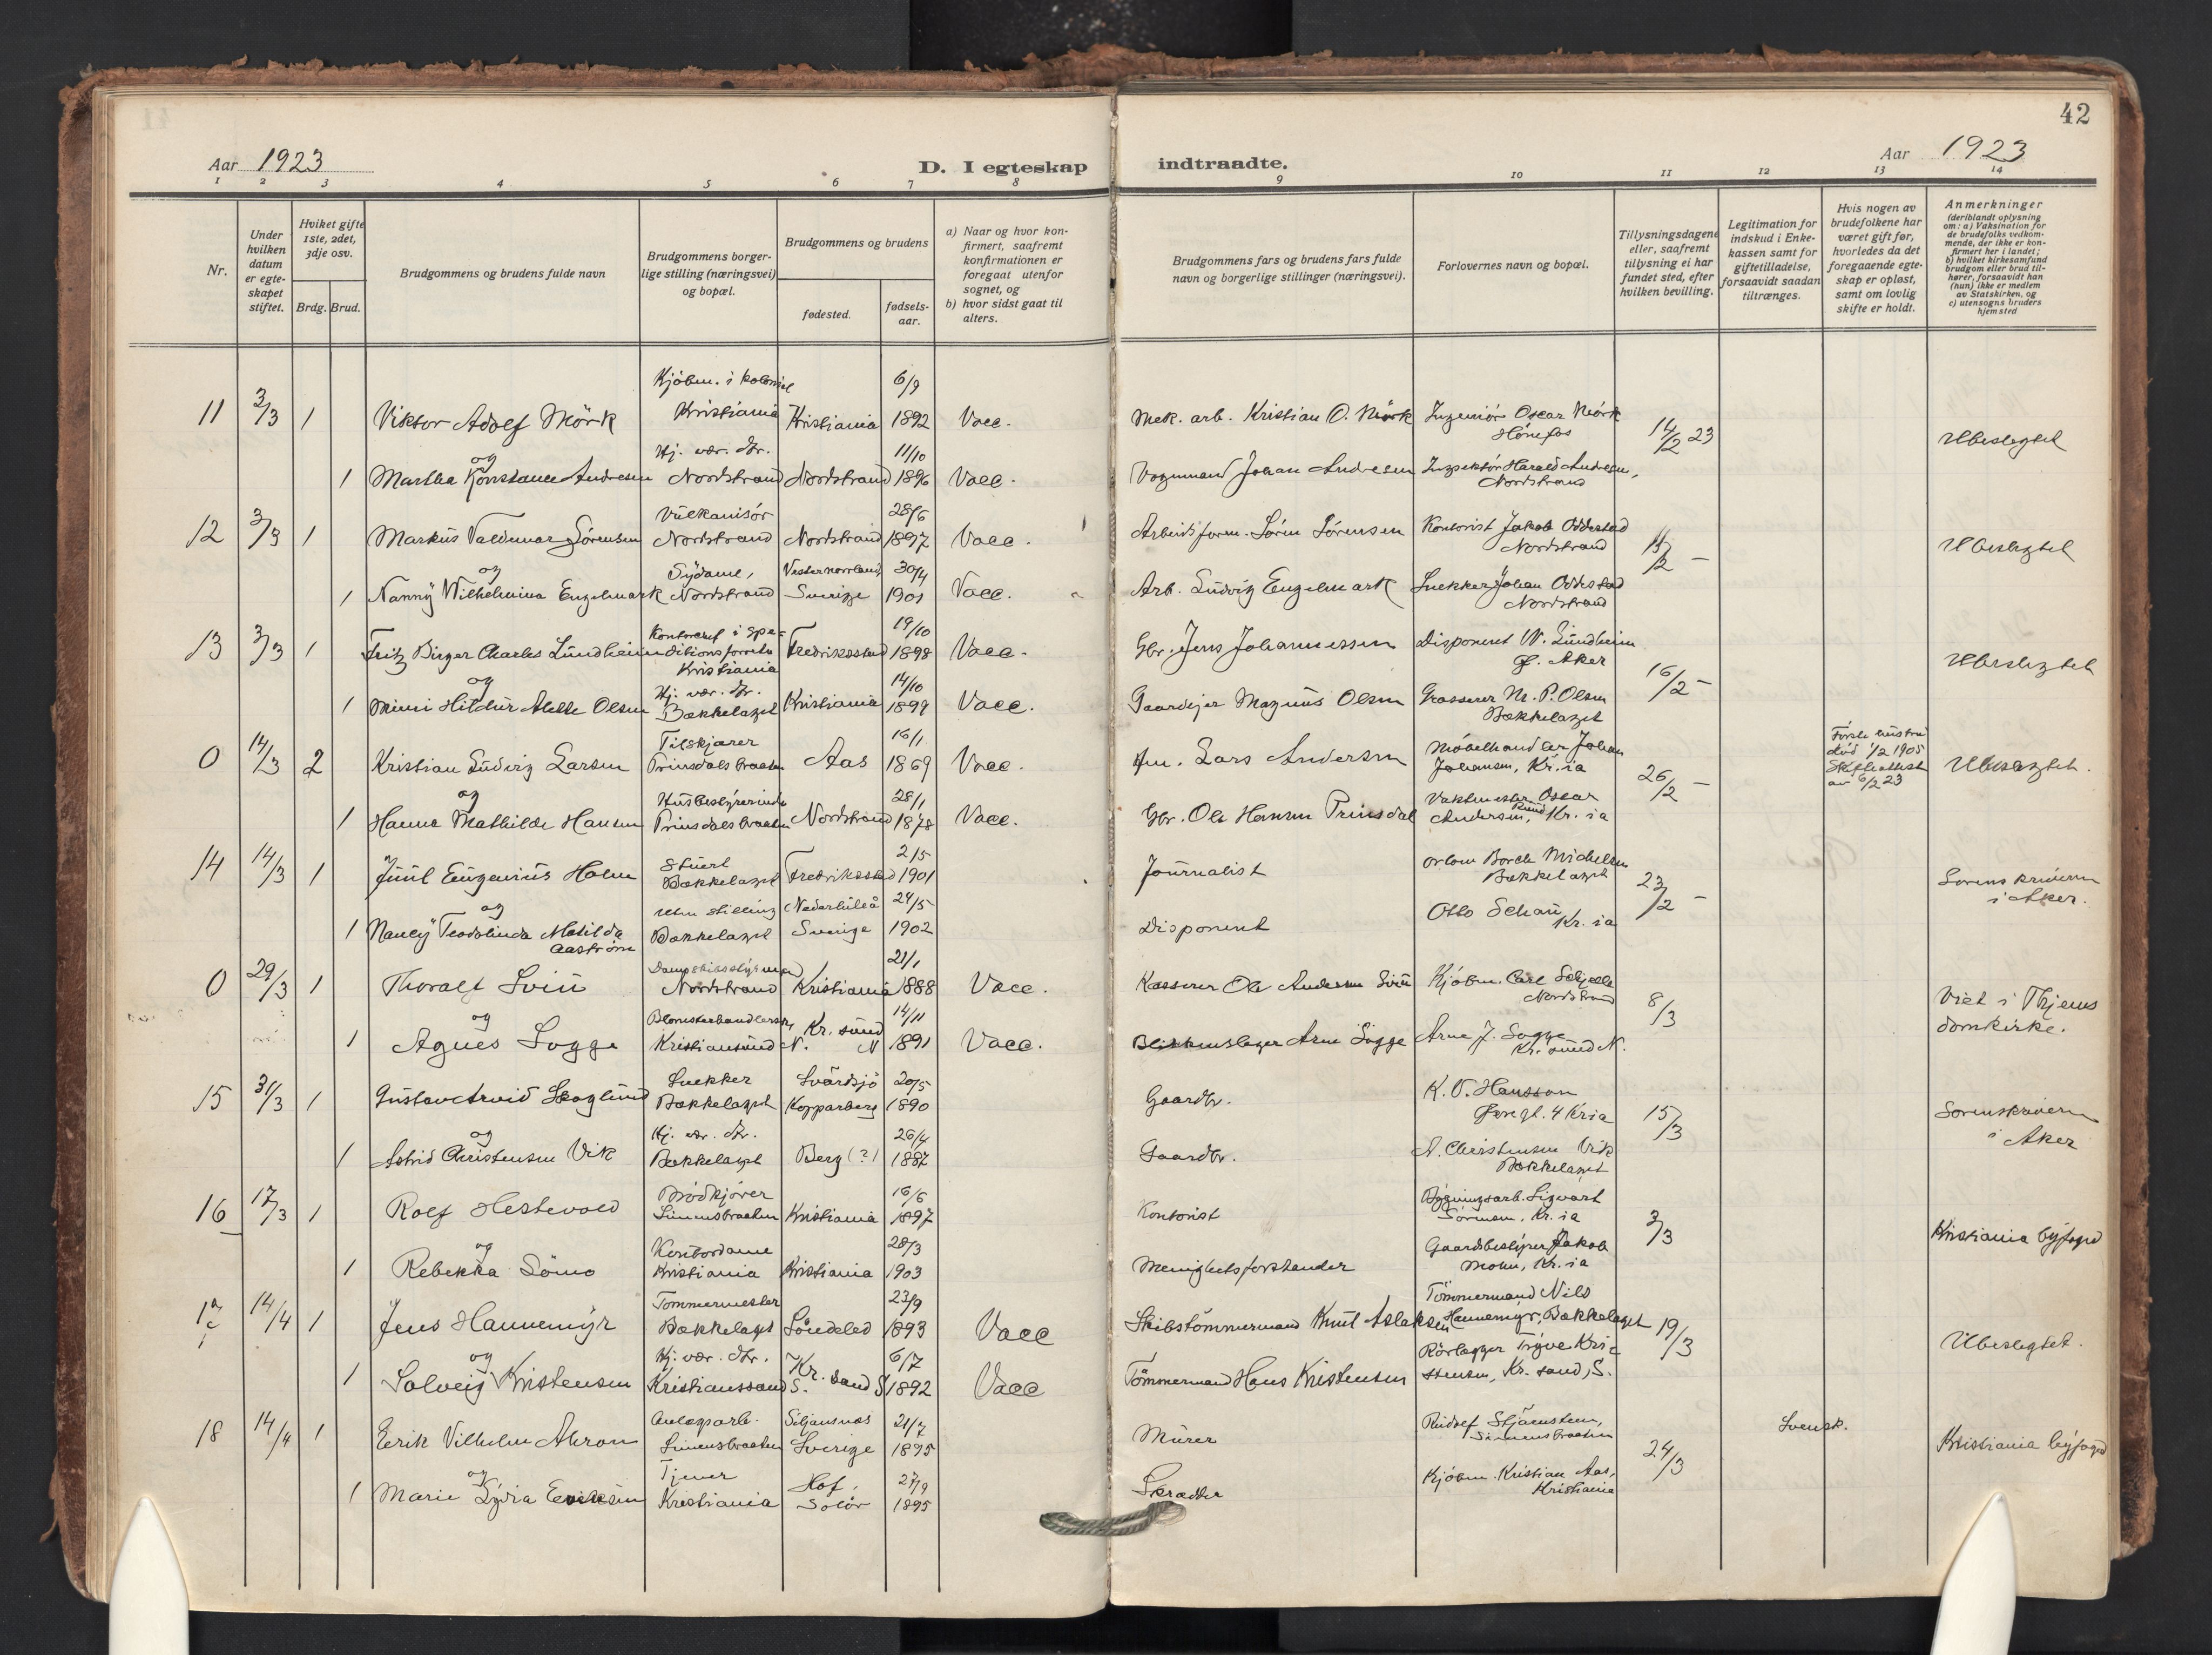 42
Aar 1923
D. I egteskap indtraadte.
Aar 1923
1 2 3 4 5 6 7 8 9 10 11 12 13 14
Nr.
Under hvilken datum er egteskapet stiftet.
Hviket gifte 1ste, 2det, 3dje osv.
Brdg. Brud.
Brudgommens og brudens fulde navn
Brudgommens borgerlige stilling (næringsvei) og bopæl.
Brudgommens og brudens
fødested.
fødselsaar.
a) Naar og hvor konfirmert, saafremt konfirmationen er foregaat utenfor sognet, og
b) hvor sidst gaat til alters.
Brudgommens fars og brudens fars fulde navn og borgerlige stillinger (næringsvei).
Forlovernes navn og bopæl.
Tillysningsdagene eller, saafremt tillysning ei har fundet sted, efter hvilken bevilling.
Legitimation for indskud i Enkekassen samt for giftetilladelse, forsaavidt saadan tiltrænges.
Hvis nogen av brudefolkene har været gift før, hvorledes da det foregaaende egteskap er opløst, samt om lovlig skifte er holdt.
Anmerkninger
(deriblandt oplysning om: a) Vaksination for de brudefolks vedkommende, der ikke er konfirmert her i landet; b) hvilket kirkesamfund brudgom eller brud tilhører, forsaavidt han (hun) ikke er medlem av Statskirken, og c) utensogns bruders hjemsted
11 3/3 1 Viktor Adolf Mörk Kjöbm. i kolonial Kristiania Kristiania 6/9 1892 Vacc. Mek. arb. Kristian O. Mörk Ingeniör Oscar Mörk Hönefos 14/2 23 Ubeslegtet
og
1 Martha Konstance Andresen Hj. vær. dtr. Nordstrand Nordstrand 11/10 1896 Vacc. Vognmand Johan Andresen Inspektör Harald Andresen, Nordstrand
12 3/3 1 Markus Valdemar Sörensen Vulkanisör Nordstrand Nordstrand 28/6 1897 Vacc. Arbeidsform. Sörin Sörensen Kontorist Jakob Oddestad Nordstrand /2 - Ubeslegtet
og
1 Nanny Wilhelmina Engelmark Sydame, Nordstrand Vesternorrland, Sverige 30/4 1901 Vacc. Arb. Ludvig Engelmark Snekker Johan Oddestad Nordstrand
13 3/3 1 Fritz Birger Charles Lundheim Kontorchef i speditionsforretn. Kristiania Fredriksstad 19/10 1898 Vacc. Gbr. Jens Johannessen Disponent W. Lundheim Ø. Aker 16/2 - Ubeslegtet
og
1 Mimi Hildur Alette Olsen Hj. vær. dtr. Bækkelaget Kristiania 14/10 1899 Vacc. Gaardejer Magnus Olsen Grosserer M. P. Olsen Bækkelaget
0 14/3 2 Kristian Ludvig Larsen Tilskjærer Prinsdalsbraaten Aas 16/1 1869 Vacc. Lars Andersen Möbelhandler Johan Johansen, Kr.ia 26/2 - Förste hustru död 1/2 1905 Skifteattest av 6/2 23 Ubeslegtet.
og
1 Hanna Mathilde Hansen Husbestyrerinde Prinsdalsbraaten Nordstrand 28/1 1878 Vacc. Gbr. Ole Hansen Prinsdal Vaktmester Oscar Rund Andersen, Kr.ia
14 14/3 1 Juul Eugenius Holm Stuert Bækkelaget Fredriksstad 2/5 1901 Journalist Borch Michelsen Bækkelaget 23/2 - Sorenskriveren i Aker.
og
1 Nancy Teodolinda Matilda Aaström Uten stilling Bækkelaget Nederluleå Sverige 24/5 1902 Disponent Otto Schau Kr.ia
0 29/3 1 Thoralf Sviu Dampskibsstyrmand Nordstrand Kristiania 21/1 1888 Vacc. Kasserer Ole Andersen Sviu Kjöbm. Carl Schjelle Nordstrand 8/3 Viet i Thjems domkirke.
og
1 Agnes Sogge Blomsterhandlerske, Kristiansund N. Kr. sund N 14/11 1891 Vacc. Blikkenslager Arne Sogge Arne J. Sogge Kr. sund N.
15 31/3 1 Gustav Arvid Skoglund Snekker Bækkelaget Svärdsjö Kopparberg 20/5 1890 Gaardbr. K. O. Hansson gt. 4 Kria 15/3 Sorenskriveren i Aker
og
1 Astrid Christensen Vik Hj. vær. dtr. Bækkelaget Berg (?) 26/4 1887 Gaardbr. A. Christensen Vik Bækkelaget
16 17/3 1 Rolf Hestevold Brödkjörer Simensbraaten Kristiania 16/6 1897 Kontorist Bygningsarb. Sigvart Sörensen, Kr.ia 3/3 Kristiania byfogd
og
1 Rebekka Sömo Kontordame Kristiania Kristiania 28/3 1903 Menighetsforstander Gaardsbestyrer Jakob Mohn, Kr.ia
17 14/4 1 Jens Hannemyr Tömmermester Bækkelaget Söndeled 23/9 1893 Vacc Skibstömmermand Knut Aslaksen Tömmermand Nils Hannemyr, Bækkelaget 19/3 Ubeslegtet.
og
1 Solveig Kristensen Hj. vær. dtr. Kristianssand S. Kr. sand S 6/7 1892 Vacc Tömmermand Hans Kristensen Rörlægger Trygve Kristensen, Kr. sand, S.
18 14/4 1 Eerik Vilhelm Ahron Anlægsarb. Simensbraaten Siljansnäs Sverige 21/7 1895 Murer Rudolf Stjärnsten, Simensbraaten 24/3 Svensk. Kristiania byfogd
og
1 Marie Lydia Eriksen Tjener Kristiania Hof, Solör 27/9 1895 Skrædder Kjöbm. Kristian Aas, Kristiania